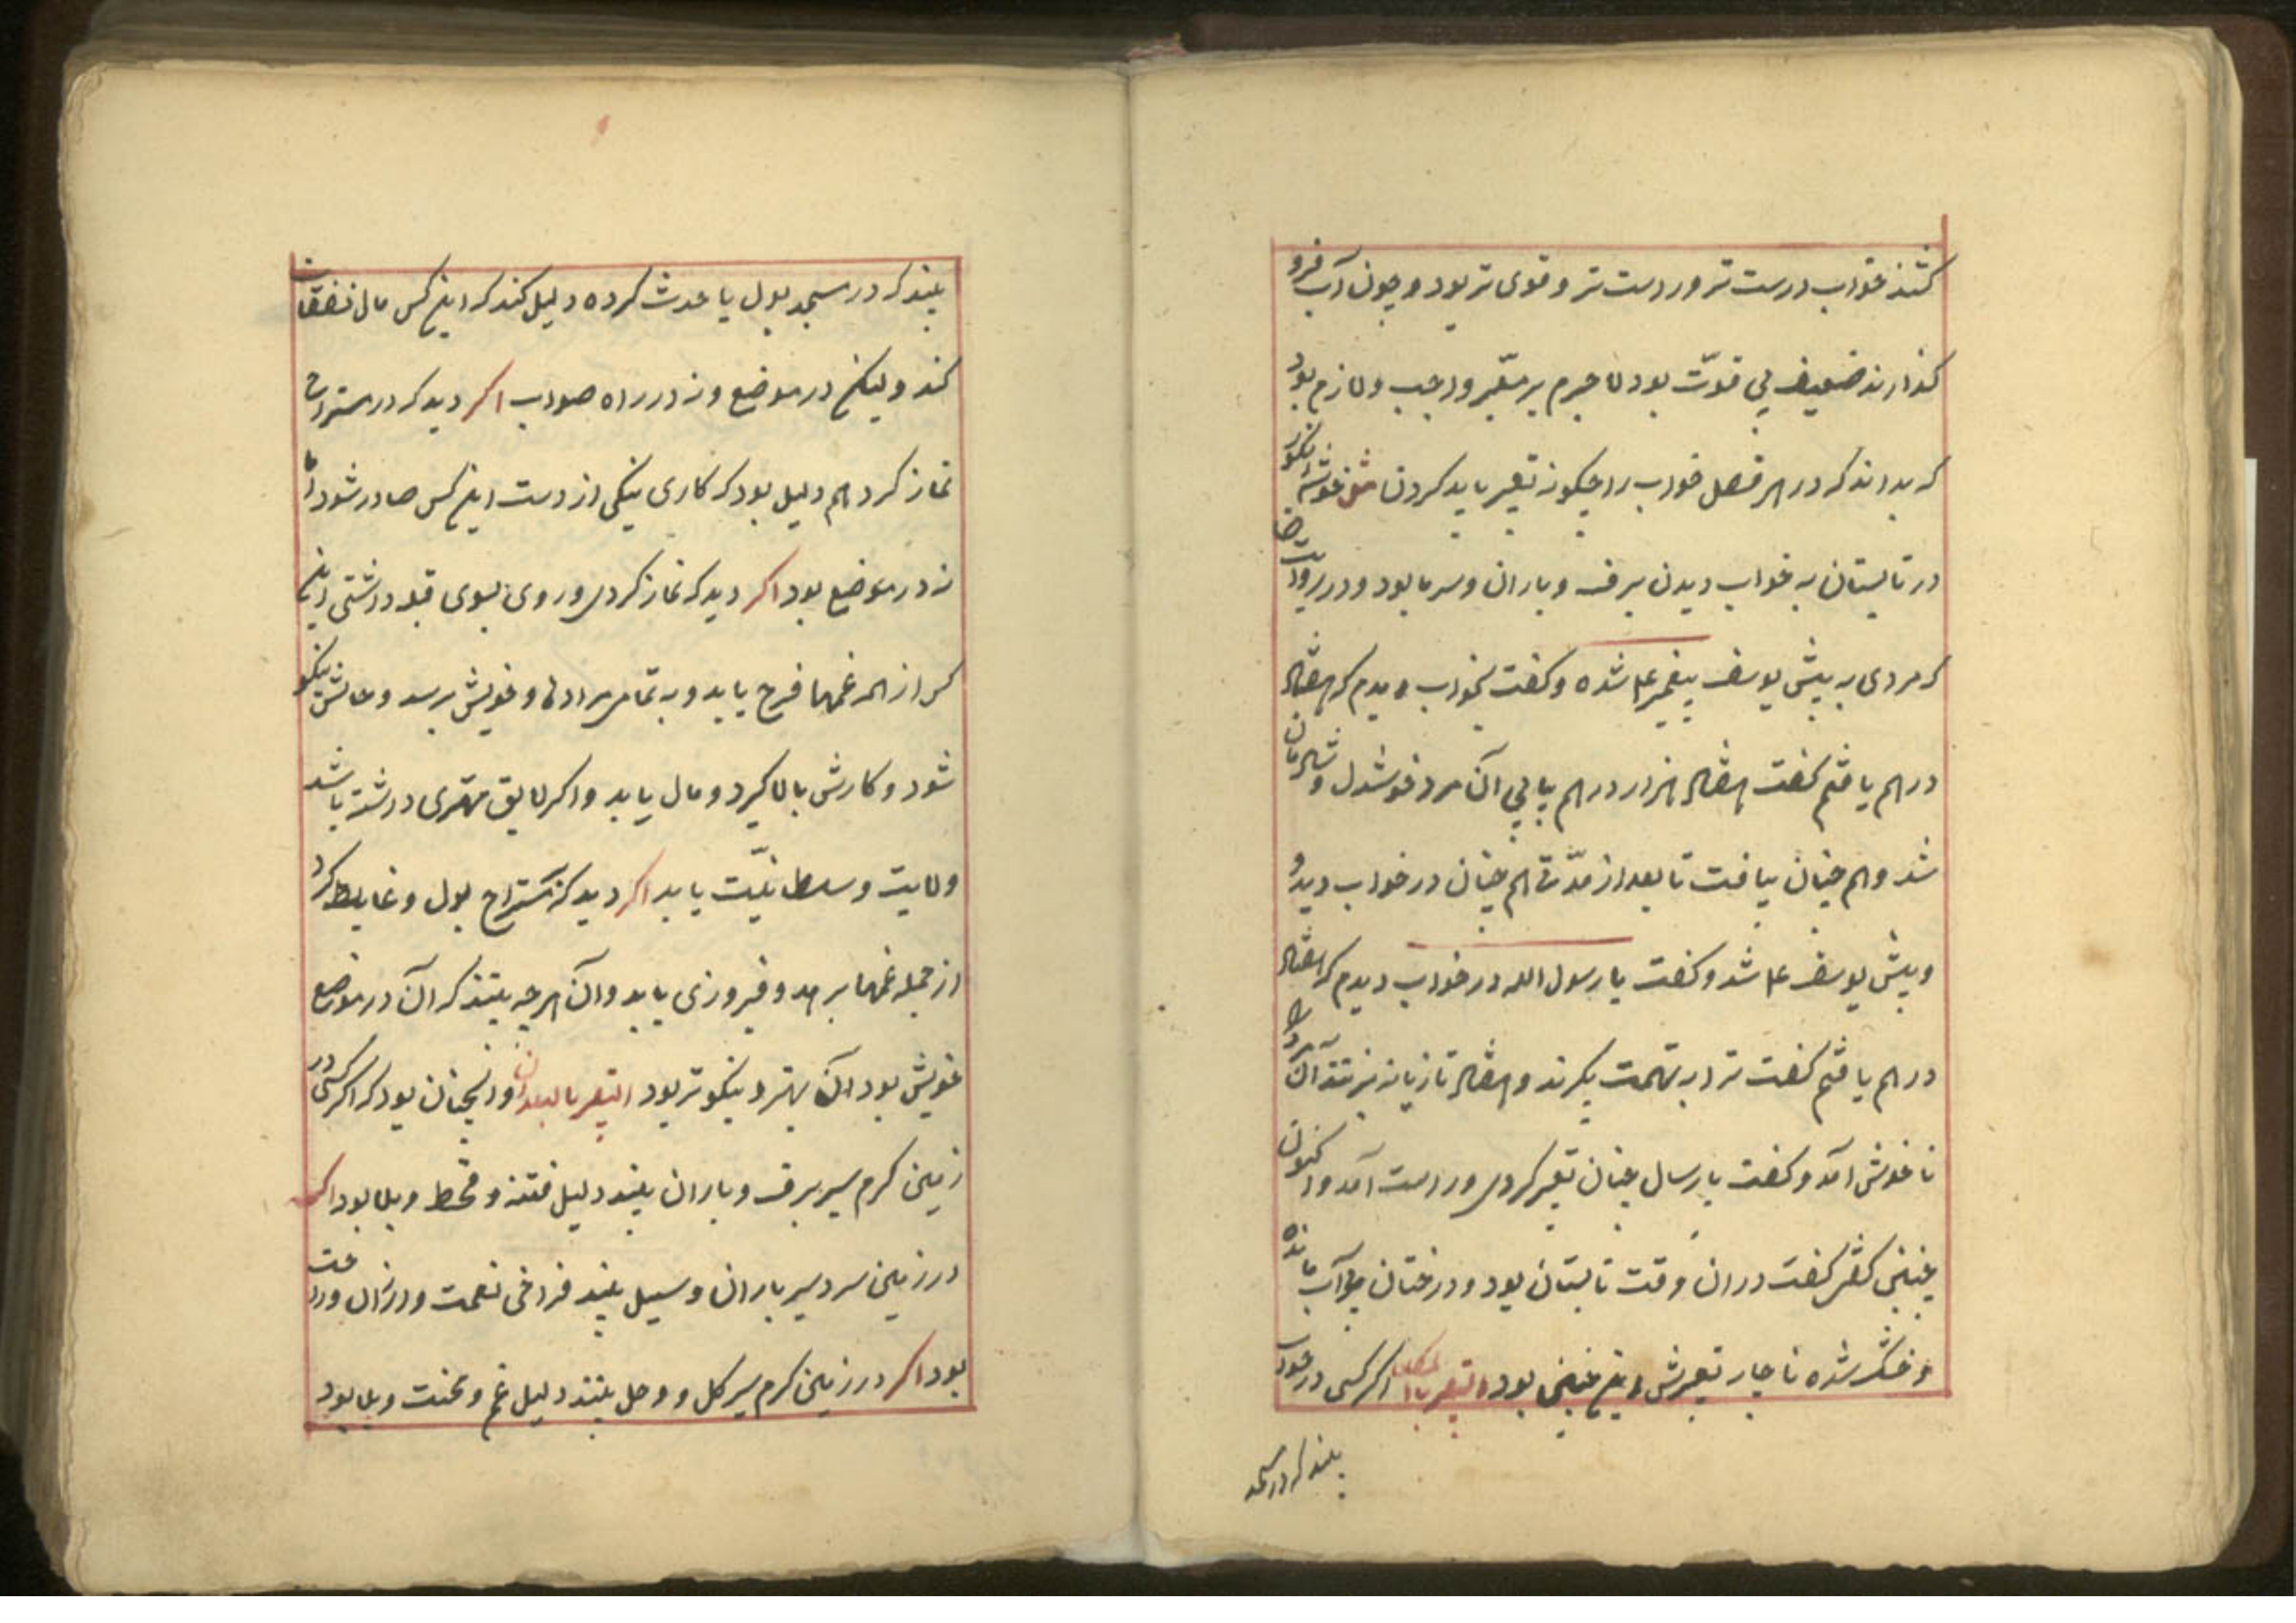 کنند خواب درست تر و راست تر و قوی تر بود و چون آب فرو
کذارند ضعیف بی قوّت بود لا جرم بر معبّر واجب و لازم بود
که بداند که در هر فصل خواب را چکونه تعبیر باید کردن مثل خوشه انکور
در تابستان به خواب دیدن برف و باران و سرما بود و در روایت
که مردی به پیش یوسف پیغمبر ع م شده و کفت بخواب دیدم که هفتاد
درهم یافتم کفت هفتاد هزار درهم یابی آن مرد خوشدل و شادمان
شد و هم چنان بیافت تا بعد از مدّتی هم چنان در خواب دید و
و پیش یوسف ع م شد و کفت یا رسول الله در خواب دیدم که هفتاد
درهم یافتم کفت ترا به تهمت بکیرند و هفتاد تازیانه بزنند آن مرد را
نا خوش آمد و کفت پارسال چنان تعبیر کردی و راست آمد و اکنون
چنین کفتی کفت در ان وقت تابستان بود و درختان پر آب مانده
و خشک شده ناچار تعبیرش این چنین بود التعبیر اکر کسی در خواب
بیند که در مسجد
بیند که در مسجد بول یا حدث کرده دلیل کند که این کس مال نفقات
کند ولیکن در موضع و نه در راه صواب اکر دید که در مستراح
نماز کرد هم دلیل بود که کاری نیکی از دست این کس صادر شود امّا
نه در موضع بود اکر دید که نماز کردی و روی بسوی قبله داشتی این
کس از همه غمها فرج یابد و به تمامی مرادها و خویش برسد و حالش نیکو
شود و کارش بالا کیرد و مال یابد و اکر لایق مهتری داشته باشد
ولایت و سلطانیّت یابد اکر دید که مستراح بول و غایط کرد
از جمله غمها برهد و فیروزی یابد و آن هر چه بیند که آن در موضع
خویش بود آن بهتر و نیکوتر بود التعبیر بالبلدان و انچنان بود که اکر کسی در
زمین کرم سیر برف و باران بیند دلیل فتنه و قحط و بلا بود اکر
در زمین سردسیر باران و سیل بیند فراخی نعمت و ارزان و راحت
بود اکر در زمین کرم سیر کل و وحل بیند دلیل غم و محنت و بلا بود